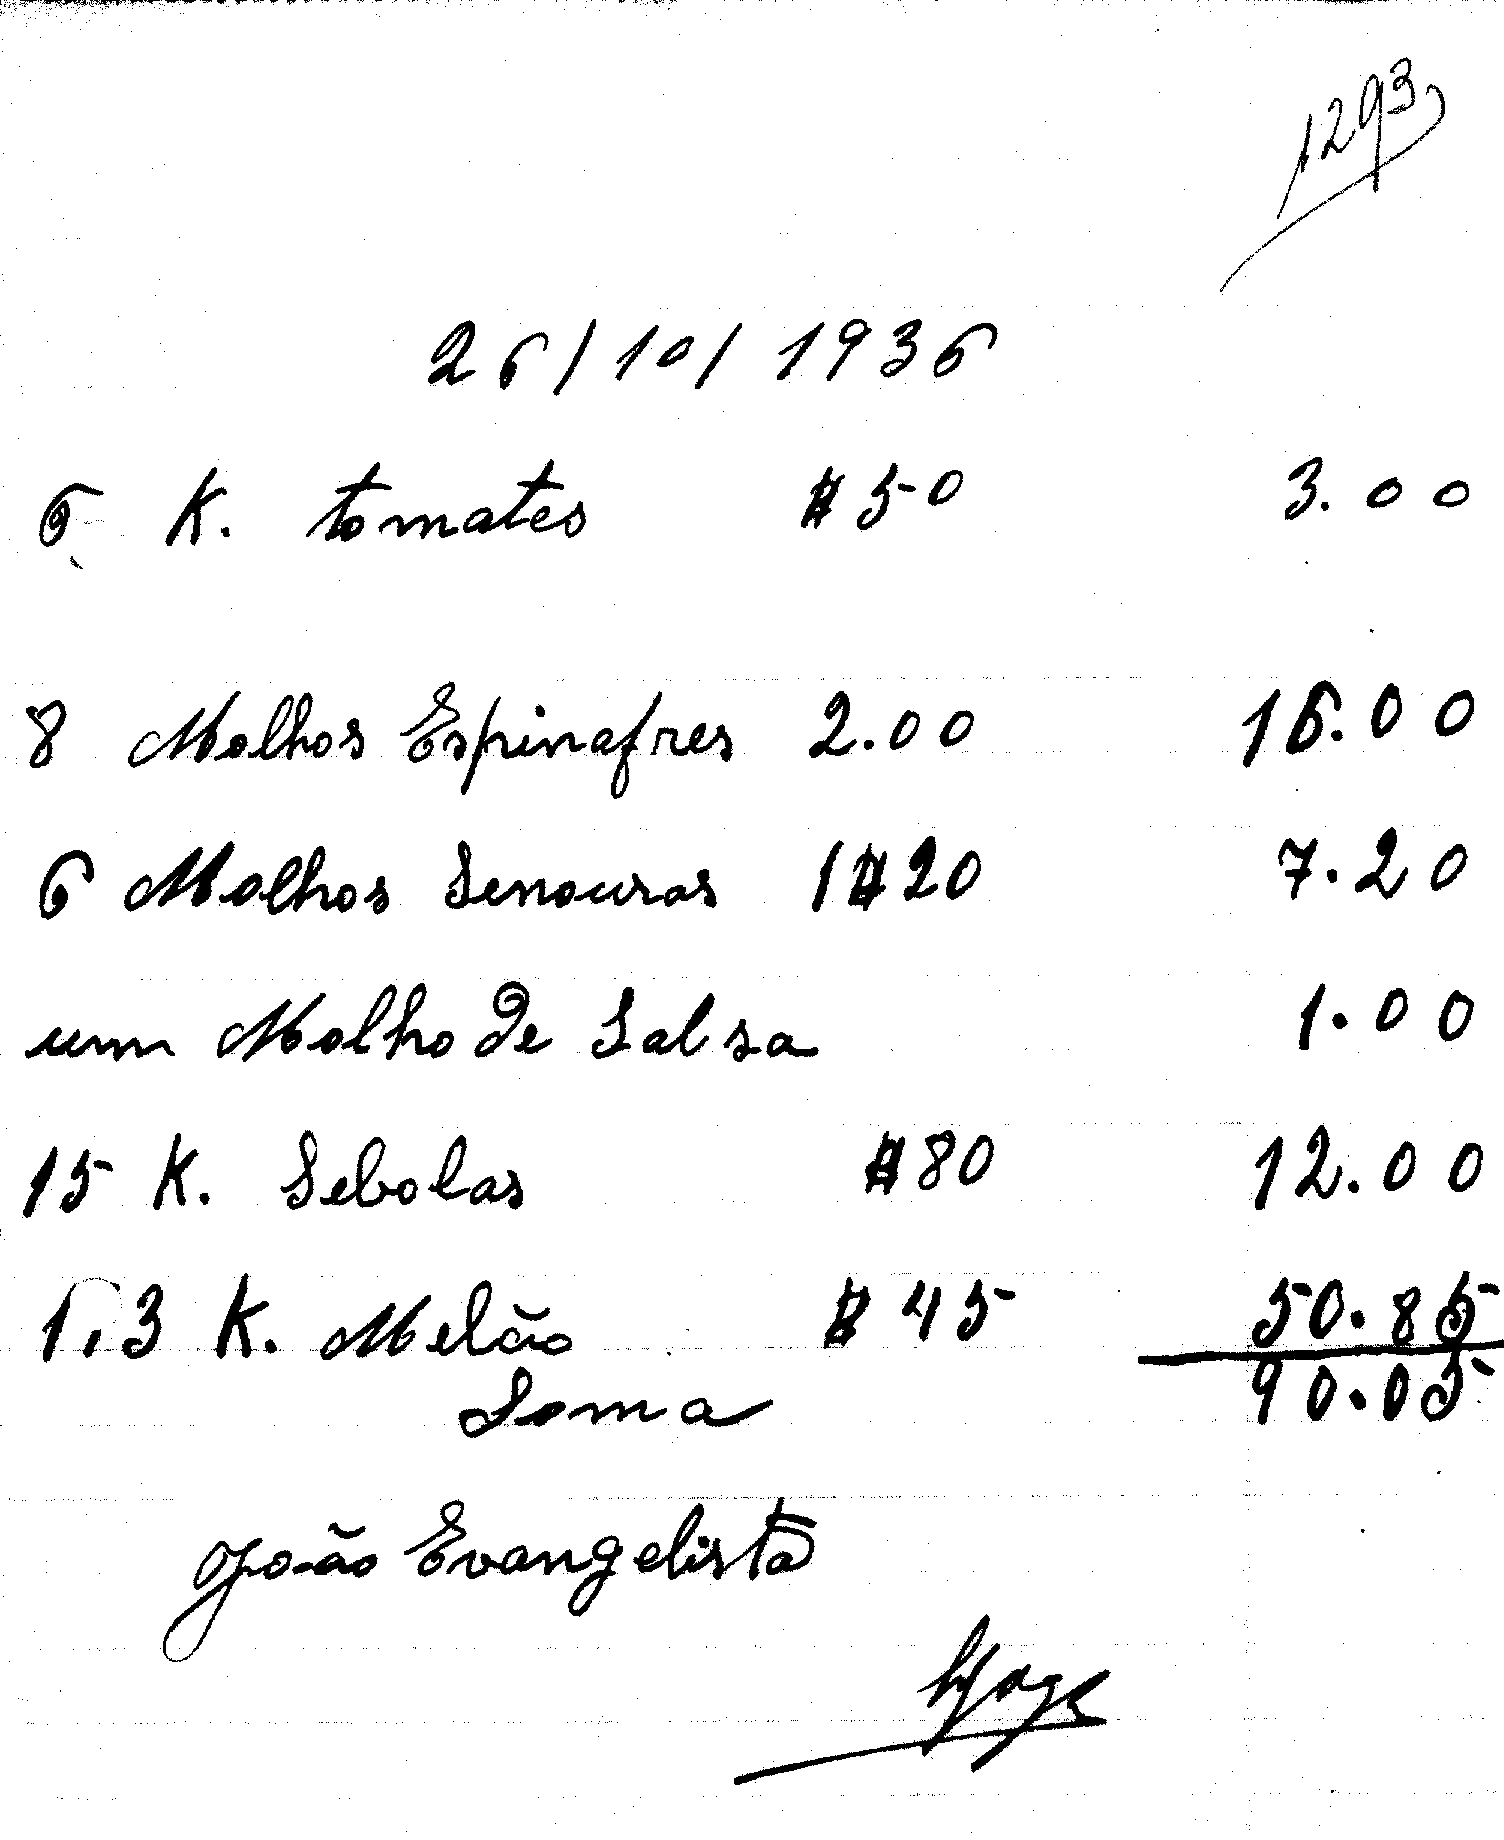 1293
26/10/1936
6 K. tomates $50 3.00
8 Molhos Espinafres 2.00 16.00
6 Molhos Senouras 1$20 7.20
um Molho de Salsa 1.00
15 K. Sebolas $80 12.00
1,3 K. Melão $45 50.85
Soma 90.05
João Evangelista